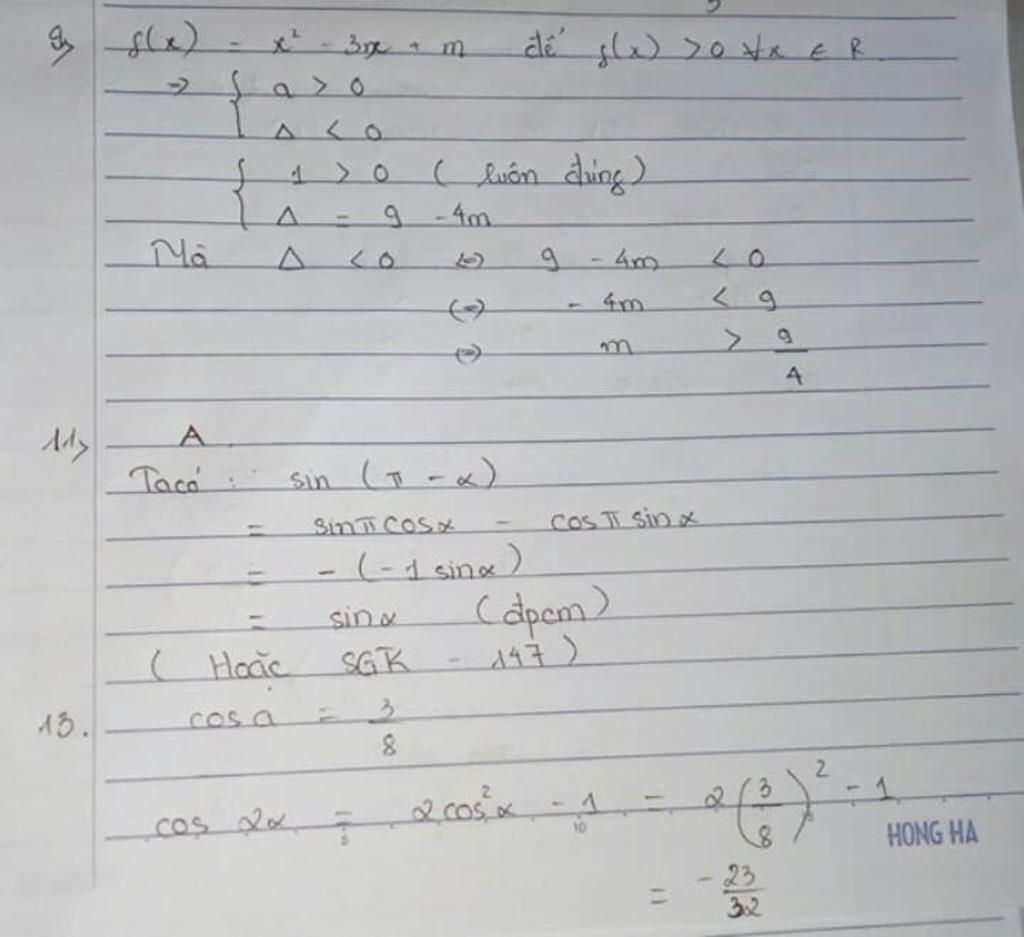 9, f(x) = x² - 3x + m để f(x) > 0 ∀x ∈ R
=> { a > 0
Δ < 0
{ 1 > 0 ( luôn đúng)
Δ = 9 - 4m
Mà Δ < 0 <=> 9 - 4m < 0
<=> - 4m < 9
<=> m > 9/4
11, A
Ta có : sin (π - α)
= sinπcosα - cosπ sinα
= - (-1 sinα)
= sinα (đpcm)
( Hoặc SGK - 147 )
13. cos a = 3/8
cos 2α = 2cos²α - 1 = 2(3/8)² - 1
5 10
HONG HA
= -23/32